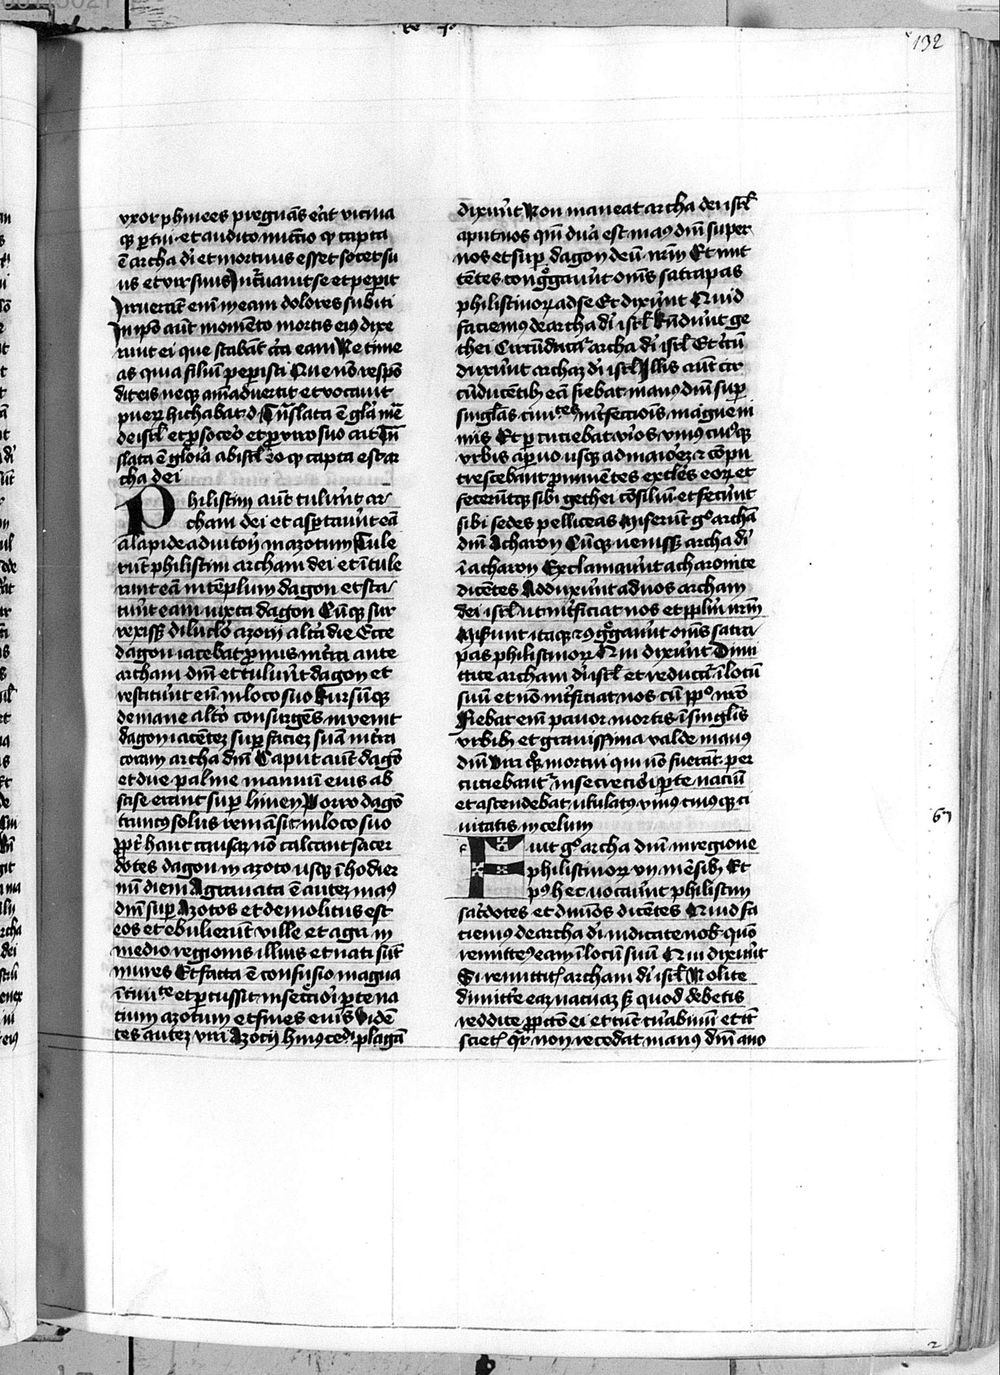 Re 1º
132
uxor phinees p̄egnās eāt vicīna
qꝫ p̄tui · et audito nūcio qꝫ capta
ē archa dī et mortuus esset socer su
us et vir suus Incūauit se et peperit
Irruerāt enī in eam dolores subiti
In ip̄o aūt momēto mortis eiꝰ dixe
runt ei que stabāt cīca eam Ne time
as quia filiū peperisti Que nō respō
dit eis neqꝫ aīaduertit et vocauit
pueꝝ hichabot d. Trāslata ē gl̄ia mē
de isrl̄ et p̄ soceō et p̄ viro suo ait Trā
slata ē gloīa ab isrl̄ eo qꝫ capta est ar
cha dei
Philistim aūt tulerūt ar-
cham dei et asp̄taurūt eā
a lapide adiutorij in azotum Tule
rūt philistim archam dei et ītule
runt eā in tēplum dagon et sta-
tuūt eam iuxta dagon Cūqꝫ sur
rexissꝫ diluclō azotij altā die Ecce
dagon iacebat p̄nus in tīa ante
archam dm̄ et tulerūt dagon et
restituūt eū in loco suo Rursūqꝫ
de mane altō consurgēs inuenit
dagon iacētē sup faciē suā in tīa
coram archa dm̄ Caput aūt dagō
et due palme manuū eius ab
scise erant sup limen Porro dagō
truncꝰ solus remāsit in loco suo
ꝓpt̄ hanc causaꝫ nō calcant sacer
dotes dagon in azoto usqꝫ ī hodier
nū diem Agrauata ē autē manꝰ
dm̄ sup azotos et demolitus est
eos et ebulierūt ville et agri in
medio regionis illius et nati sūt
mures Et facta ē confusio magna
ī ciuīte et p̄cussit in seccōi p̄te na
tium azotum et fines eius Vidē
tes autē viri azotij hmōi plagā
dixūnt Non maneat archa dei isrl̄
aput nos qm̄ dura est manꝰ dm̄ super
nos et sup dagon deū nrm̄ Et mit
tētes congͣgaurūt om̄s satrapas
philistinoꝝ ad se Et dixūnt Quid
faciemꝰ de archa dī isrl̄ Rn̄dūnt ge
thei Circūducāt archa dī isrl̄ Et cīcū
duxūnt archaꝫ dī isrl̄ Illis autē cir
cūducētibꝫ eā fiebat manꝰ dm̄ sup
singlās ciuiᵗᵉˢ int̄feccionis magne ni
mis Et p̄cuciebat viros vniꝰcuiꝰqꝫ
vrbis a puo usqꝫ ad maiorē et cōpu
trescebant p̄minētes exctēs eoꝝ et
fecerūtqꝫ sibi gethei cōsiliū et fecūnt
sibi sedes pelliceas Miserūt gͦ archā
dm̄ acharon Cūqꝫ venissꝫ archa dī
ī acharon Exclamaurūt acharonite
dicētes Adduxūnt ad nos archam
dei isrl̄ ut int̄ficiat nos et pplm̄ nrm̄
Misūnt itaqꝫ et 9gͣgaurūt om̄s satra-
pas philistinoꝝ Qui dixūnt Dimi
ttite archam dī isrl̄ et reducat̄ ī locū
suū et nō int̄ficiat nos cū ppᵒ nr̄o
Fiebat enī pauor mortis ī singlīs
vrbibꝫ et grauissima valde manꝰ
dm̄ Viri qꝫ mortui qui nō fuerāt per
cuciebant̄ in secreciōi p̄te naciū
et ascendebat ululatꝰ vniꝰcuiusqꝫ ci
uitatis in celum
Fuit gͦ archa dm̄ in regione
philistinoꝝ vij mēsibꝫ Et
pꝰ hec vocaurūt philistim
sac̄dotes et diuinōs dicētes Quid fa
ciemꝰ de archa dī indicate nobꝫ quō
remittemꝰ eam ī locū suū Qui dixūnt
Si remittitꝭ archam dī isrl̄ Nolite
dimitt̄e eaꝫ vacuaꝫ sꝫ quod debetis
reddite ꝓ pctō ei et tūc curabimī et tc̄
scietꝭ qr̄ non recedat manus dm̄ a uo
67
2